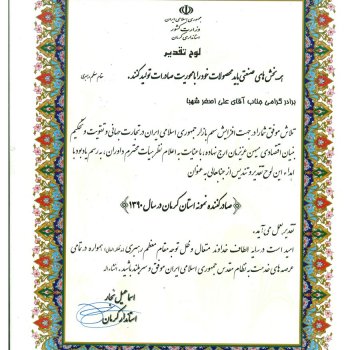 جمهوری اسلامی ایران
وزارت کشور
استانداری کرمان
لوح تقدیر
همه بخش های صنعتی باید محصولات خود را با محوریت صادرات تولید کنند.
مقام معظم رهبری
برادر گرامی جناب آقای علی اصغر شهبا
تلاش موفق شما را در جهت افزایش سهم بازار جمهوری اسلامی ایران در تجارت جهانی و تقویت و تحکیم
بنیان اقتصادی میهن عزیزمان ارج نهاده، با عنایت به اعلام نظر هیأت محترم داوران، به رسم یادبود با
اهداء این لوح تقدیر و تندیس از جنابعالی به عنوان
«صادرکننده نمونه استان کرمان در سال ۱۳۹۰»
تقدیر بعمل می آید.
امید است در سایه الطاف خداوند متعال و تحت توجه مقام معظم رهبری همواره در تمامی
عرصه های خدمت به نظام مقدس جمهوری اسلامی ایران موفق و سربلند باشید. انشاءا...
اسماعیل نجار
استاندار کرمان